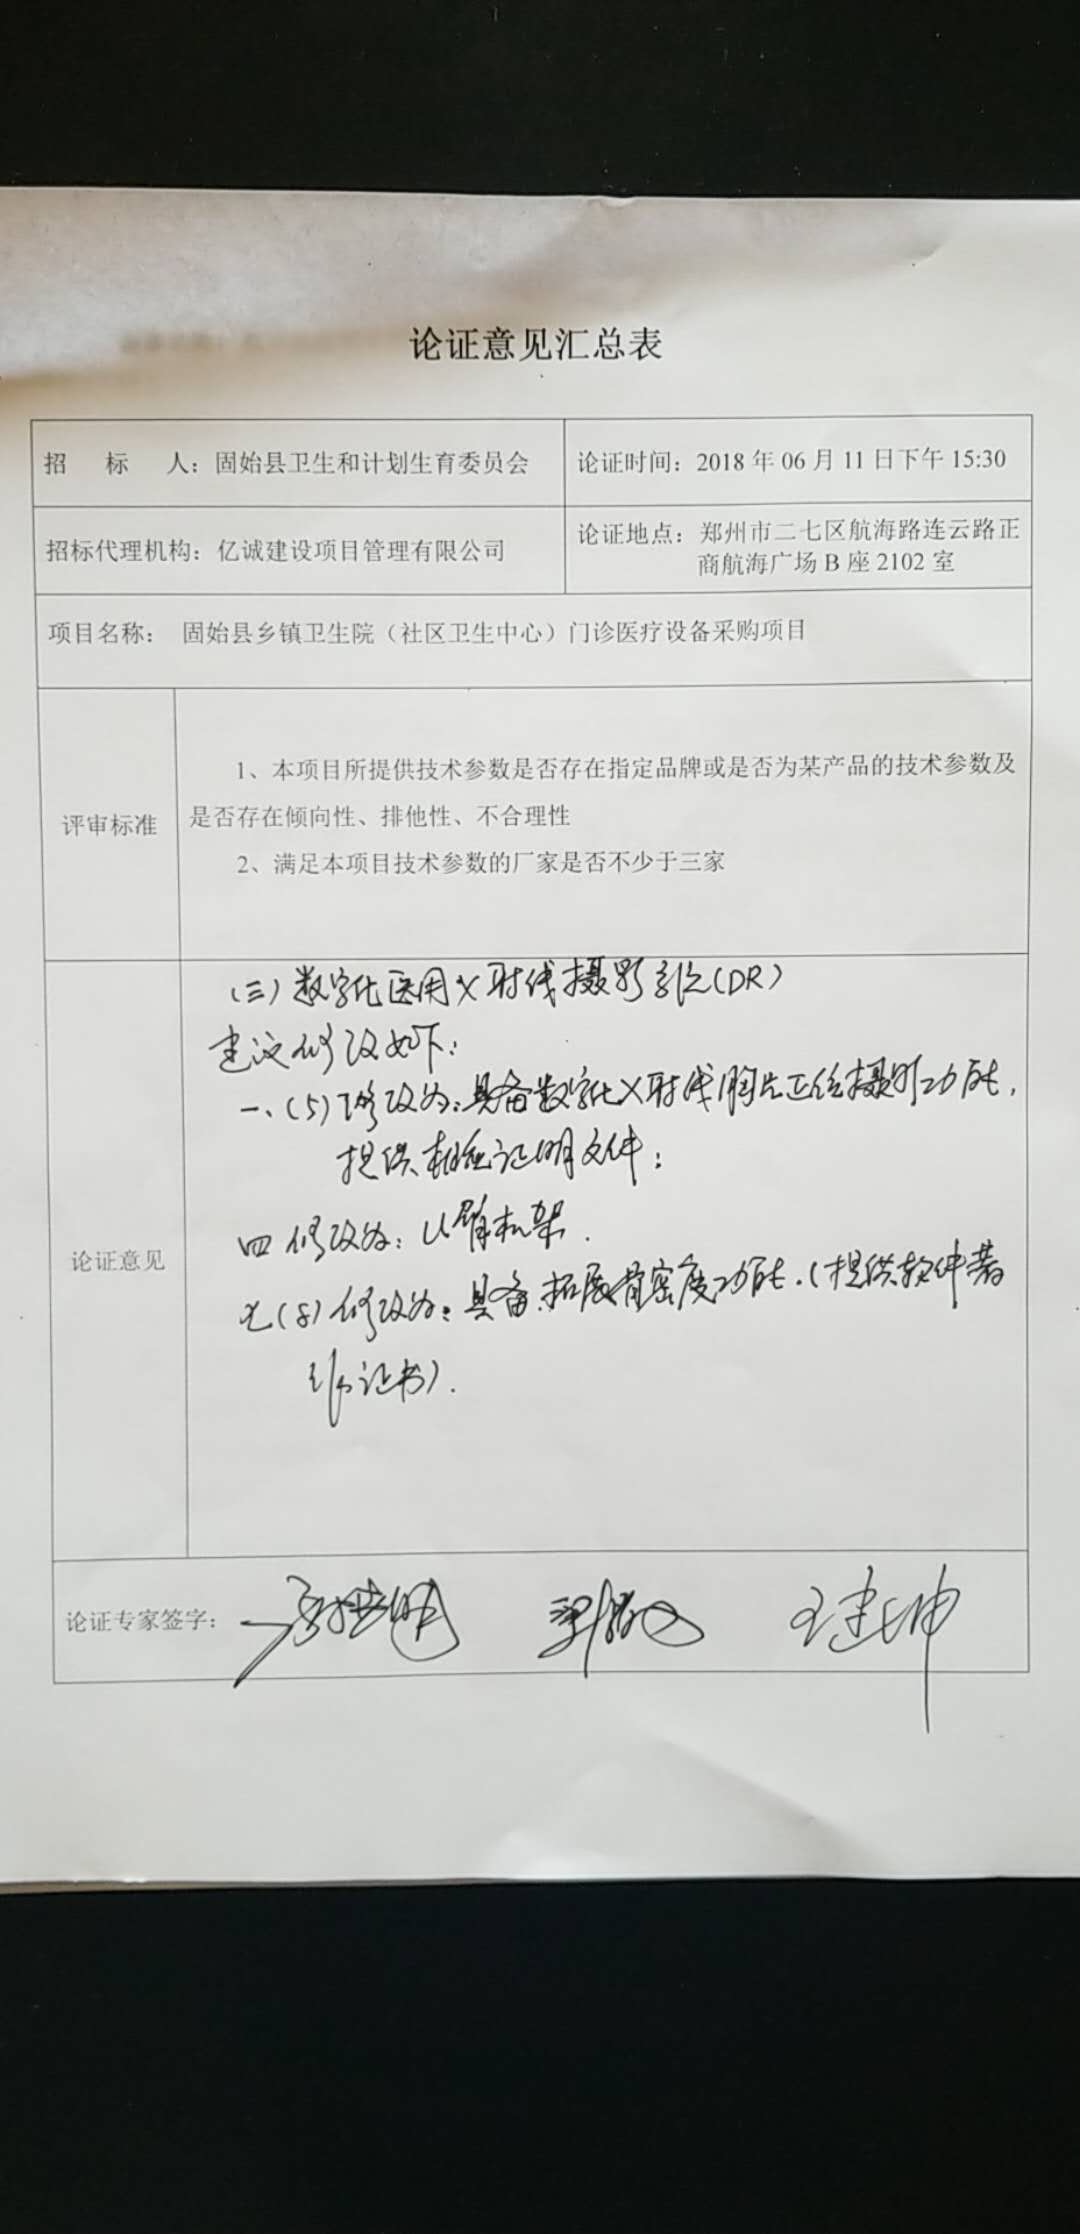 论证意见汇总表
招 标 人：固始县卫生和计划生育委员会
论证时间：2018 年 06 月 11 日下午 15:30
招标代理机构：亿诚建设项目管理有限公司
论证地点：郑州市二七区航海路连云路正
商航海广场 B 座 2102 室
项目名称： 固始县乡镇卫生院（社区卫生中心）门诊医疗设备采购项目
评审标准
1、本项目所提供技术参数是否存在指定品牌或是否为某产品的技术参数及
是否存在倾向性、排他性、不合理性
2、满足本项目技术参数的厂家是否不少于三家
论证意见
(三)数字化医用X射线摄影系统(DR)
建议修改如下：
一、(5)修改为：具备数字化X射线胸片正位摄影功能，
提供相应证明文件；
四 修改为：U臂机架．
七(8)修改为：具备拓展骨密度功能．(提供软件著
作证书)．
论证专家签字：
王建坤